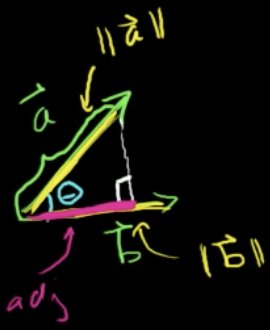 ‖a⃗‖
a⃗
θ
b⃗
‖b⃗‖
adj